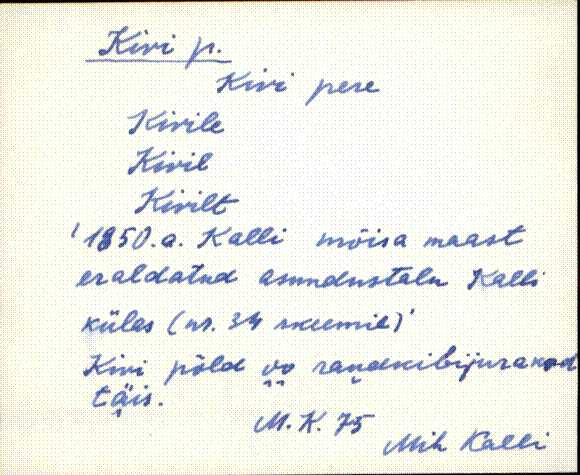 Kivi p.
Kivi pere
Kivile
Kivil
Kivilt
'1850.a. Kalli mõisa maast
eraldatud asundustalu Kalli
külas (nr. 34 skeemil)'
Kivi põld vo raudkibijurakad
täis.
M. K. 75
Mih Kalli